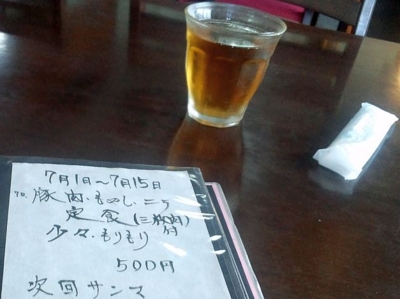 7月1日~7月15日
豚肉・もやし・ニラ
定食
付
少々・もりもり
500円
次回サンマ